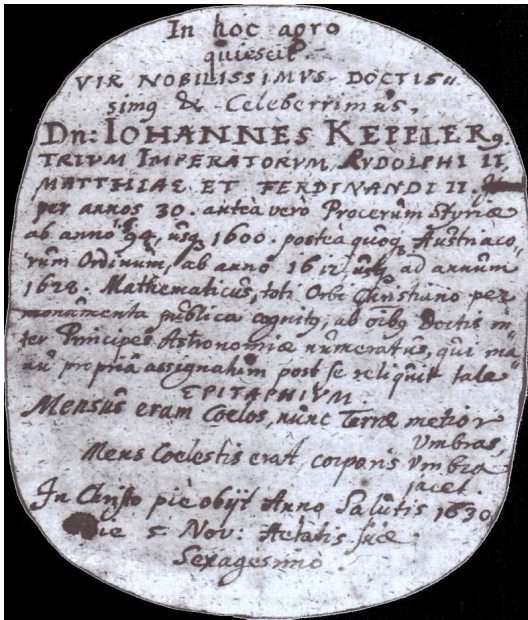 In hoc agro
quiescit
VIR NOBILISSIMVS DOCTIS„
simq & Celeberrimus,
Dn: IOHANNES KEPPLERq.
TRIVM IMPERATORVM RVDOLPHI II
MATTHIAE ET FERDINANDI II.
per annos 30. anteà verò Procerum Styriæ
ab anno 94, usq 1600. posteà quoq Austriaco,
rum Ordinum, ab anno 1612 usq ad annum
1628. Mathematicus, toti Orbi Christiano per
monumenta publica cognitq, ab oibq Doctis in„
ter Principes Astronomiæ numeratus, qui ma„
nu propria assignatum post se reliquit tale
EPITAPHIVM.
Mensus eram Coelos, nunc Terræ metior
Vmbras,
Mens Coelestis erat, corporis Vmbra
jacet.
In Christo piè obijt Anno Salutis 1630
die 5 Nov: Aetatis suæ
Sexagesimo